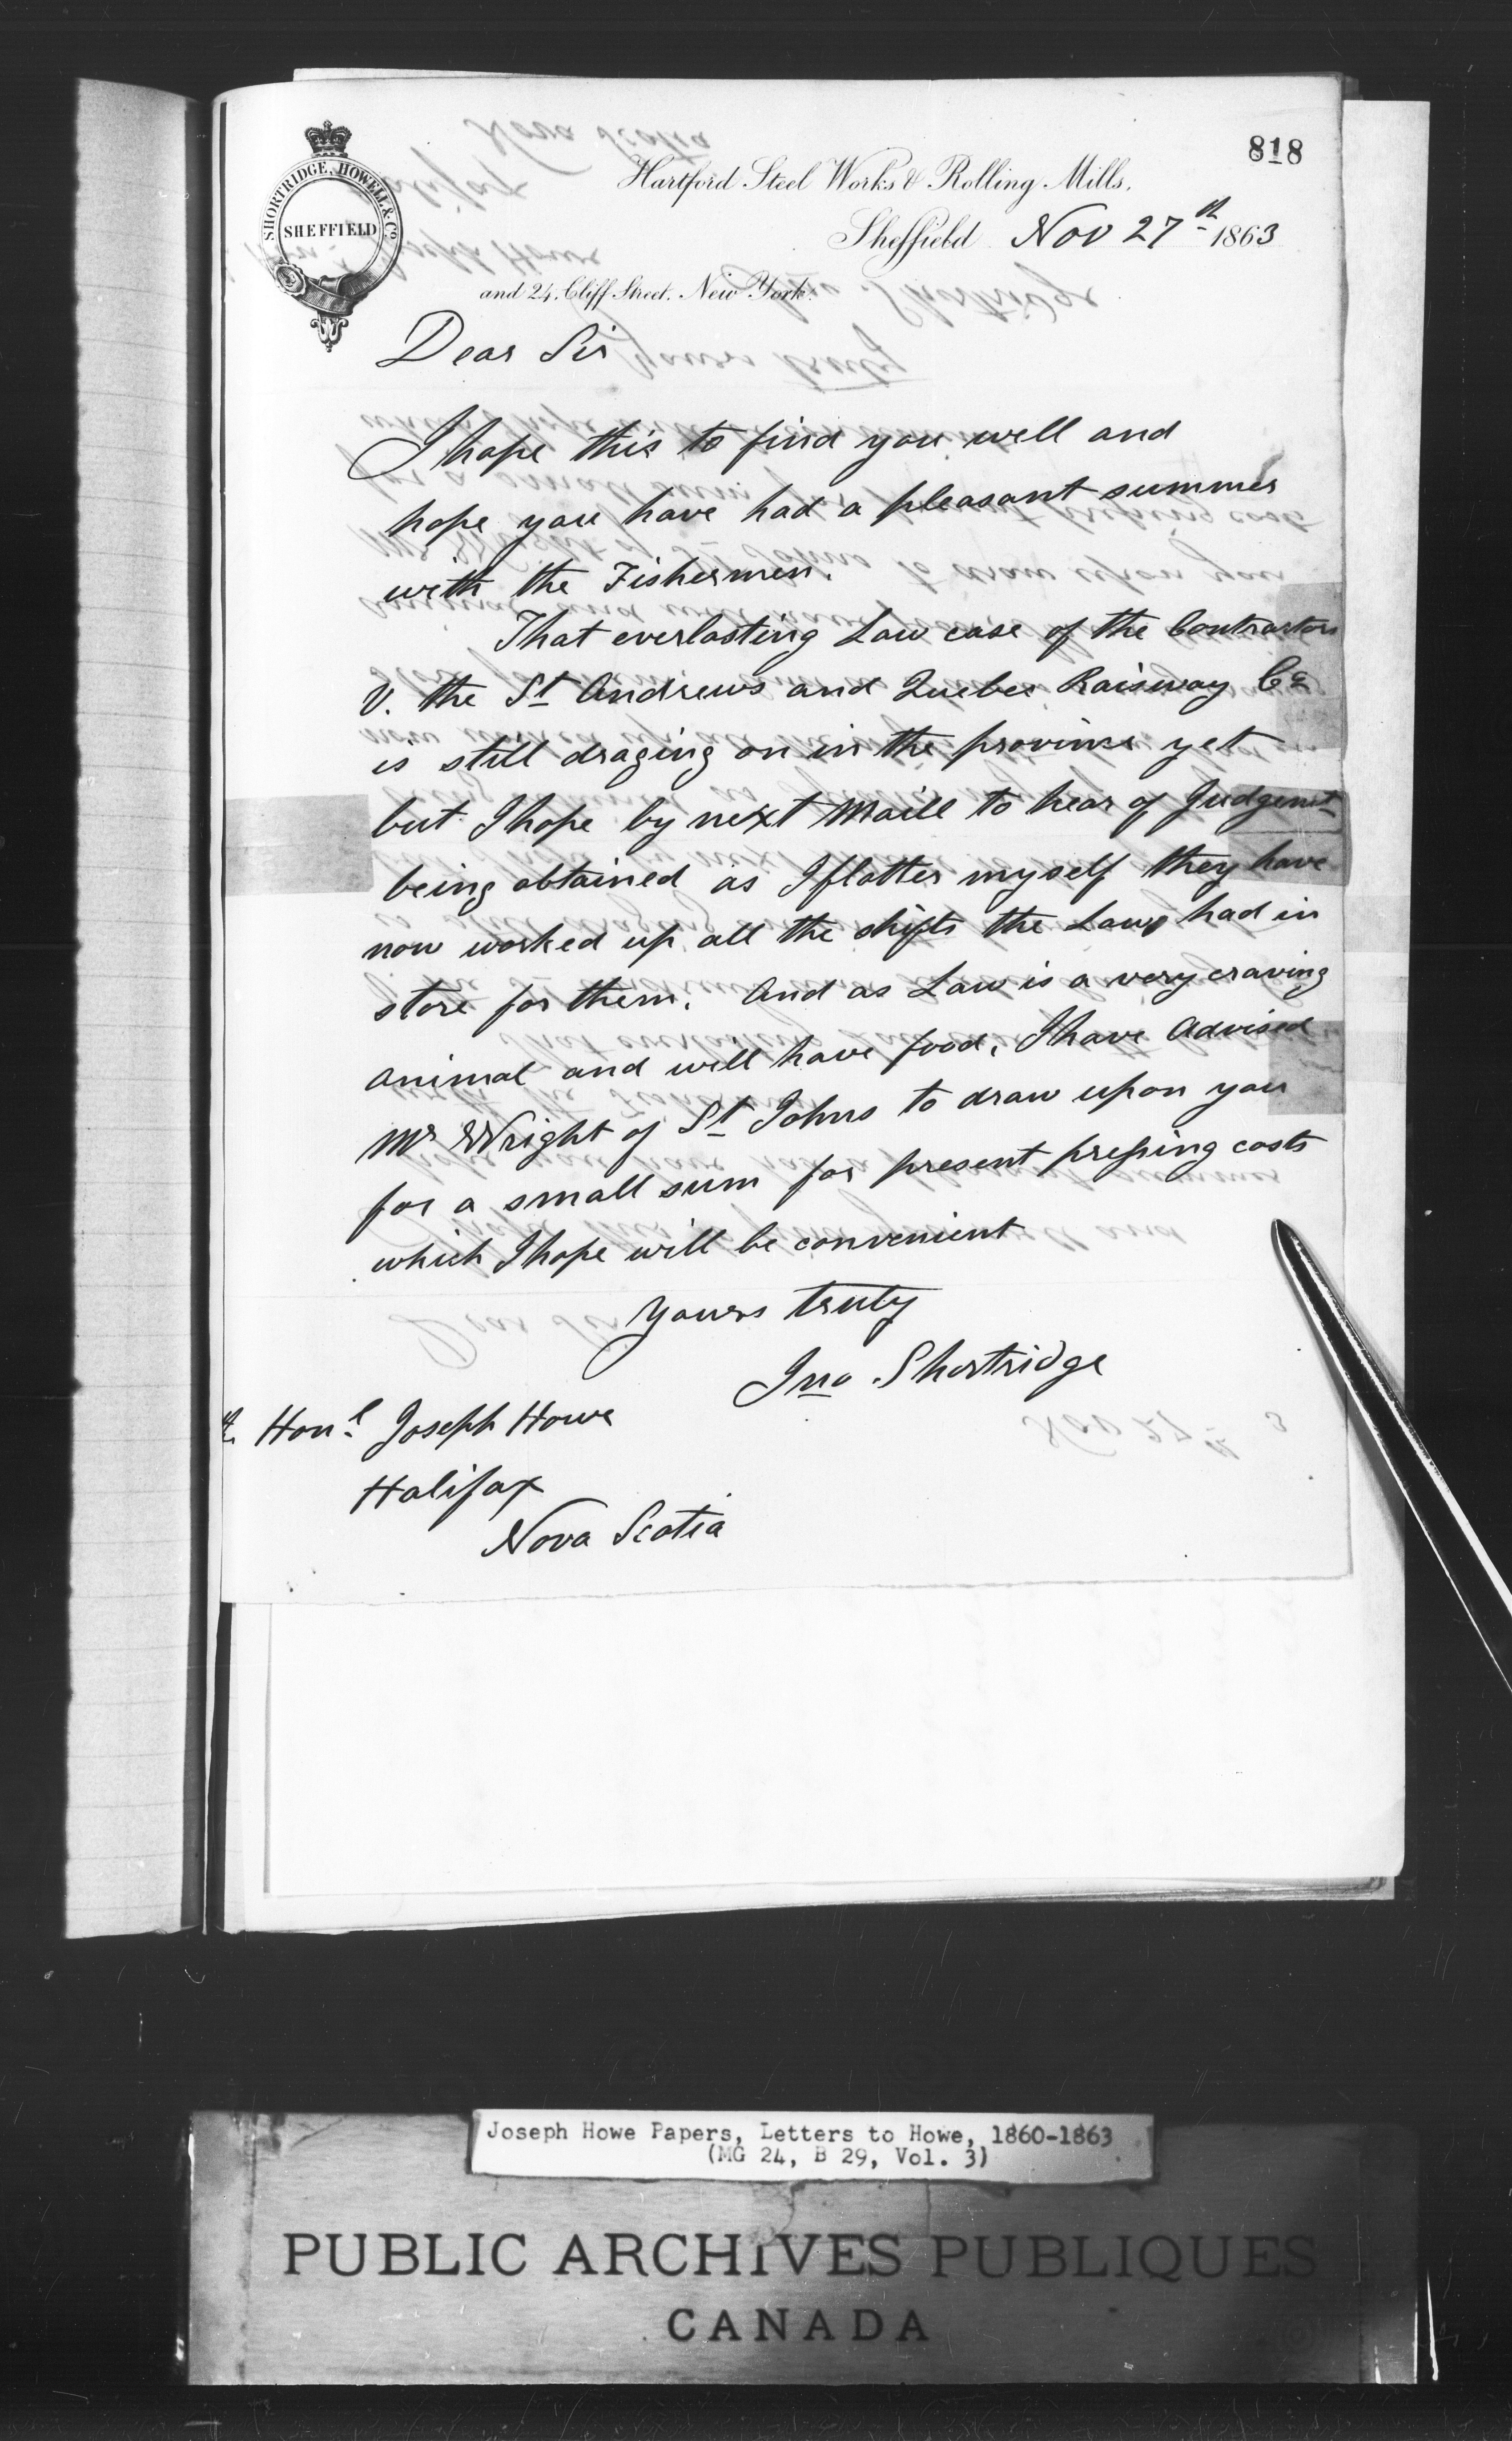 818
SHORTRIDGE, HOWELL & Co
SHEFFIELD
Hartford Steel Works & Rolling Mills,
Sheffield Nov 27th 1863
and 24, Cliff Street, New York.
Dear Sir
I hope this to find you well and
hope you have had a pleasant summer
with the Fishermen.
That everlasting Law case of the Contractors
V. the St Andrews and Quebec Raisway Co
is still draging on in the province yet
but I hope by next Maill to hear of Judgemt
being obtained as I flatter myself they have
now worked up all the shifts the Law had in
store for them. And as Law is a very craving
animal and will have food, I have Advised
Mr Wright of St Johns to draw upon you
for a small sum for present pressing costs
which I hope will be convenient
Yours truly
Jno Shortridge
Honl Joseph Howe
Halifax
Nova Scotia
Joseph Howe Papers, Letters to Howe, 1860-1863
(MG 24, B 29, Vol. 3)
PUBLIC ARCHIVES PUBLIQUES
CANADA